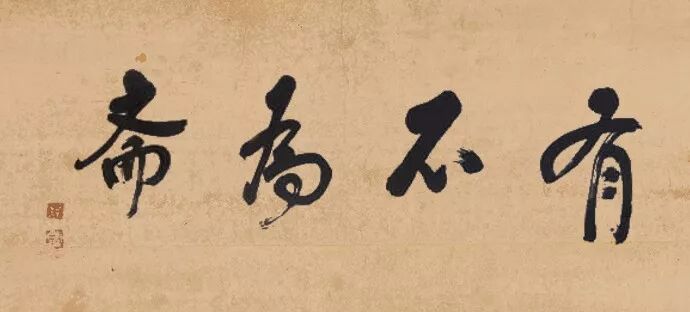 有不為斋